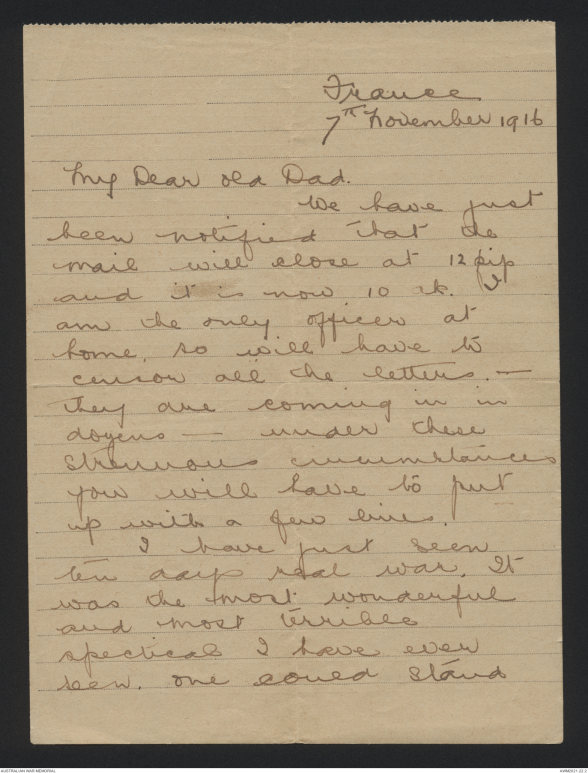 France
7th November 1916
My Dear old Dad.
We have just
been notified that the
mail will close at 12 pip
and it is now 10 ak. I
am the only officer at
home, so will have to
censor all the letters. —
They are coming in in
dozens — under these
strenuous circumstances
you will have to put
up with a few lines.
I have just seen
ten days real war. It
was the most wonderful
and most terrible
spectical I have ever
seen. One could stand
AUSTRALIAN WAR MEMORIAL